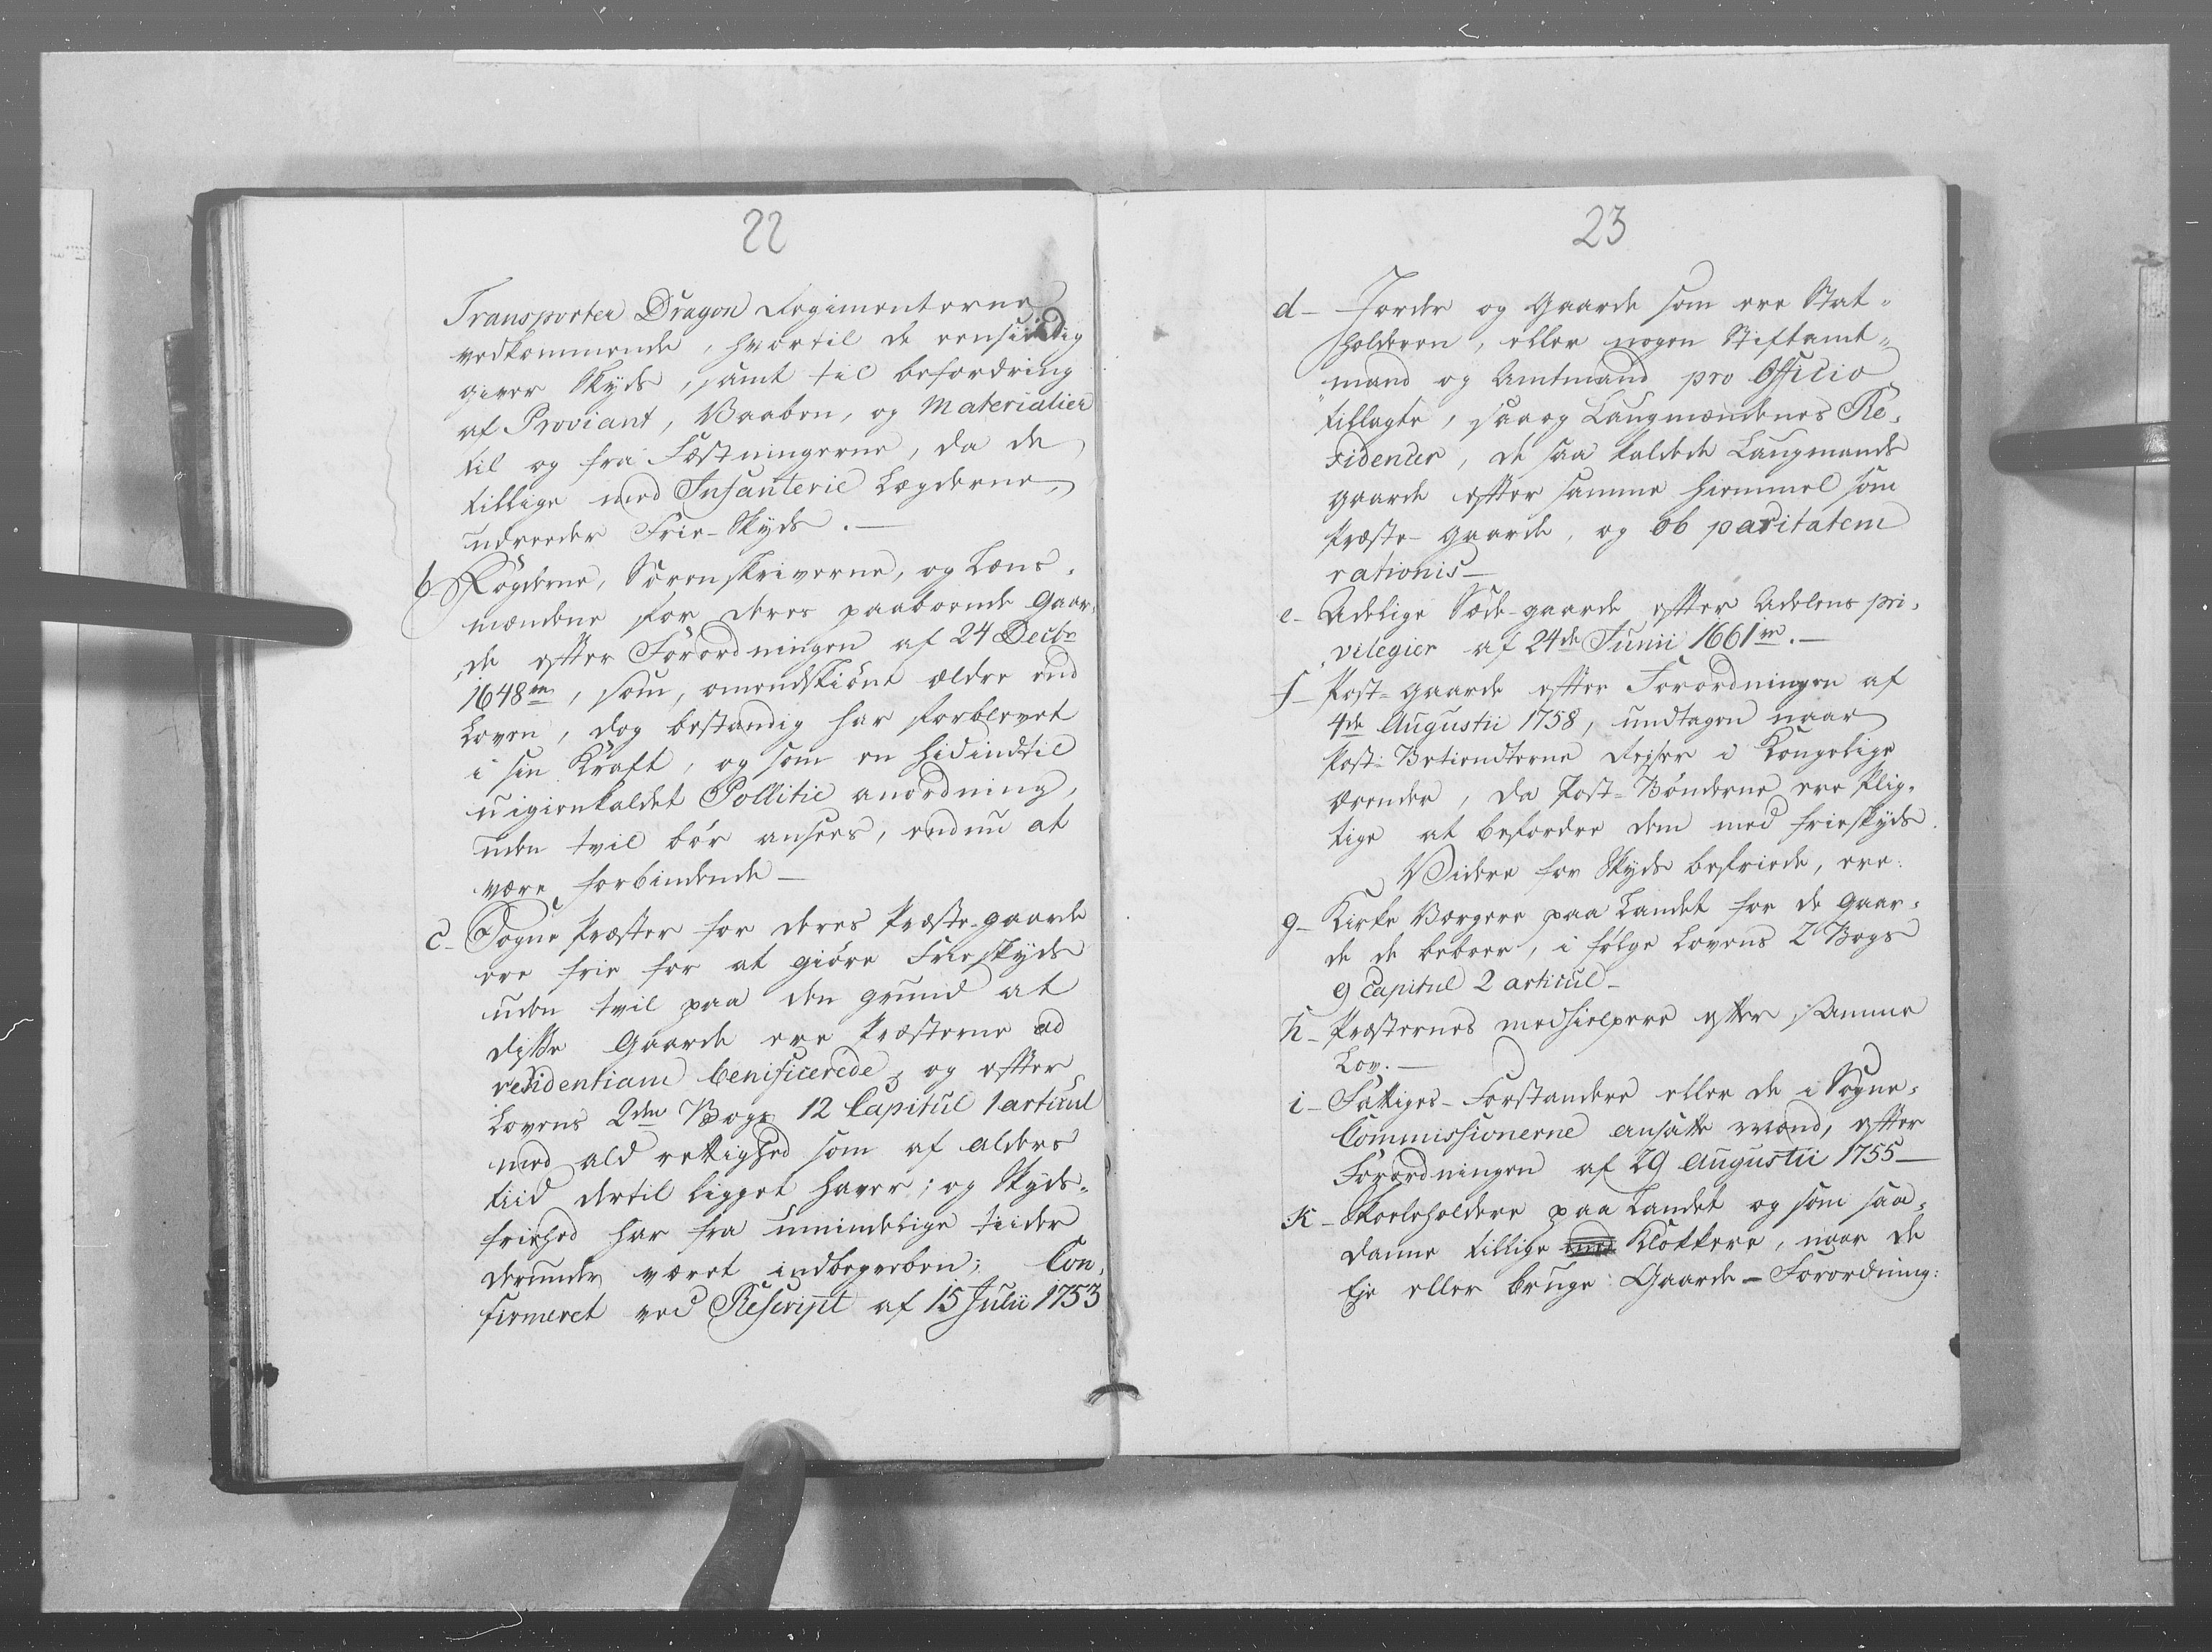 22
Transporter Dragon Regimenterne
vedkommende, hvortil de eensidig
giver Skyds, samt til befordring
af Proviant, Vaaben, og Materialier
til og fra Fæstningerne, da de
tillige med Infanterie Lægderne,
udreeder Frie-Skyds.—
b Fogderne, Sorenskriverne, og Læns-
mændene for deres paaboende Gaar-
de efter Forordningen af 24 Decbr
1648 , som, omendskiönt ældre end
Loven, dog bestandig har forblevet
i sin Kraft, og som en hidindtil
uigienkaldet Pollitie anordning,
uden tvil bör ansees, endnu at
være forbindende—
c- Sogne Præster for deres Præste-gaarde
ere frie for at giöre Frieskyds
uden tvil paa den grund at
disse Gaarde ere Præsterne ad
residentiam benificerede, og efter
Lovens 2den Bogs 12 Capitul 1 articul
med ald rettighed som af alders
tiid dertil ligget haver; og Skyds-
friehed har fra umindelige tiider
derunder været indbegreben; Con-
firmeret ved Rescript af 15 Julii 1753
23
d- Jorder og Gaarde som ere Stat-
holderen, eller nogen Stiftamt-
mand og Amtmand pro Officio
tillagte, saa og Laugmændenes Re-
sidencer, de saa kaldede Laugmands
gaarde efter samme hiemmel som
Præste-gaarde, og ob paritatem
rationis—
e- Adelige Sæde-gaarde efter Adelens pri-
vilegier af 24de Junii 1661 .—
f- Post-gaarde efter Forordningen af
4de Augustii 1758, undtagen naar
Post-Betiendterne Reiser i Kongelige
ærender, da Post-Bönderne ere Plig-
tige at befordre dem med frieskyds.
Videre for Skyds befriede, ere:
g- Kirke Værgere paa Landet for de Gaar-
de de beboer, i fölge Lovens 2 Bogs
9 Capitul 2 articul-
h- Præsternes medhielpere efter samme
Lov.—
i- Fattiges-Forstandere eller de i Sogne-
Commissionerne ansatte mænd, efter
Forordningen af 29 Augustii 1755—
K- Skoeleholdere paa Landet og som saa-
danne tillige med Klokkere, naar de
Eje eller bruge Gaarde- Forordning: